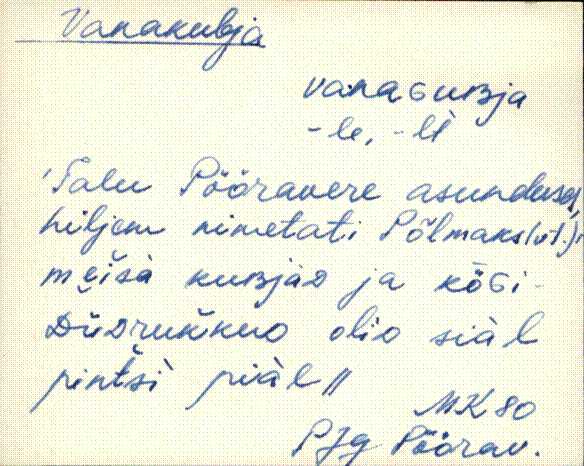 Vanakubja
vanaGuBja
-le, -lt
'Talu Pööravere asunduses,
hiljem nimetati Põlmaks (vt.):
mə̑isà kuBjaD ja köGi-
Düdrukkuᴅ oliᴅ siäl
pintši piäl //
MK 80
PJg Pöörav.